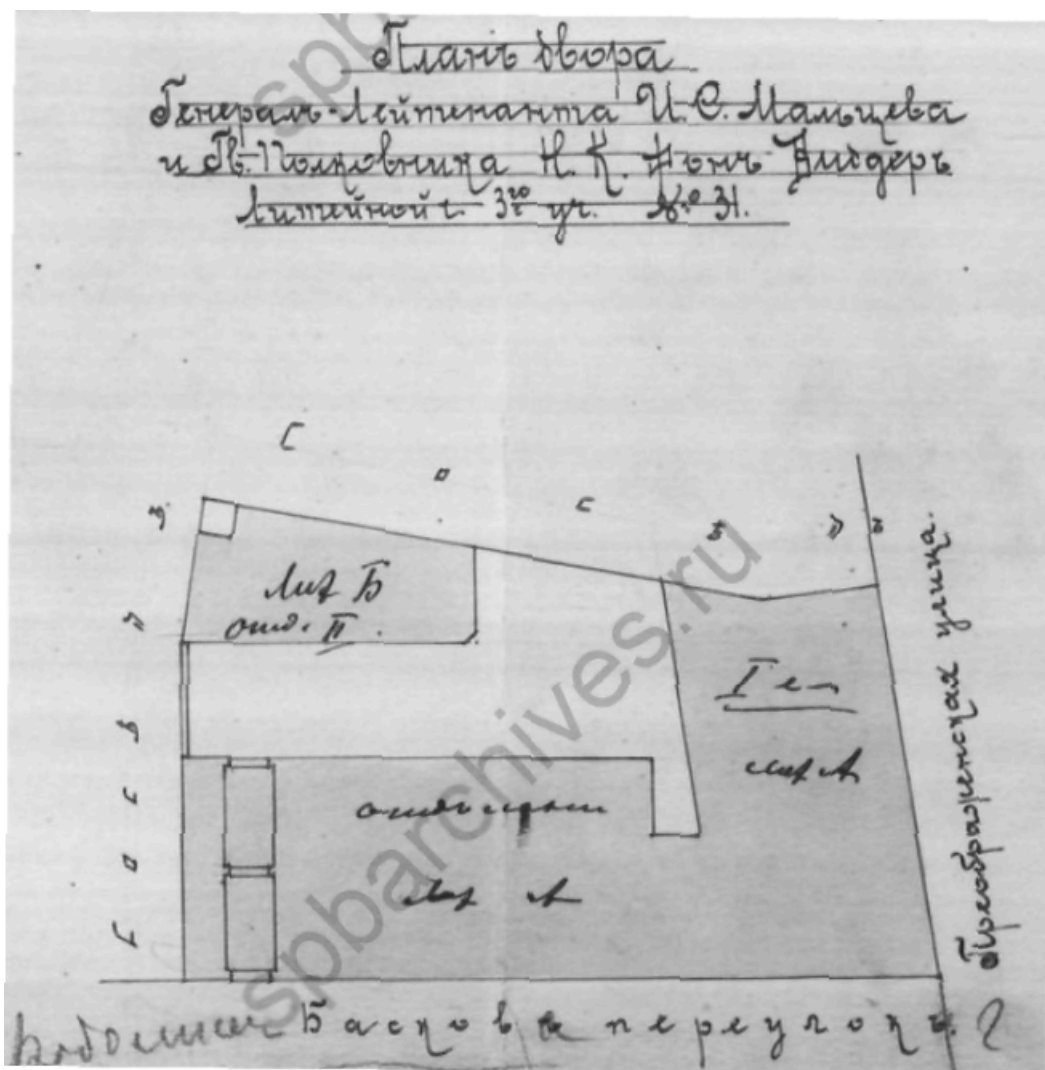 Планъ двора
Генералъ-Лейтенанта И. С. Мальцева
и Гв. Полковника Н. К. Фонъ
Литейной ч. 3го уч. № 31.
Сосѣдн
Сосѣдн
Лит Б
отд. II
I
лит А
лит А
Преображенская улица.
Басковъ переулокъ.
spbarchives.ru